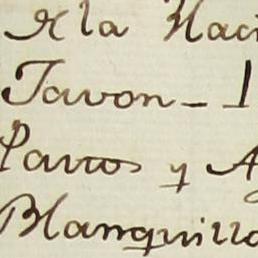 R la Haci
Javon - 1
Patios y A
Blanquillo